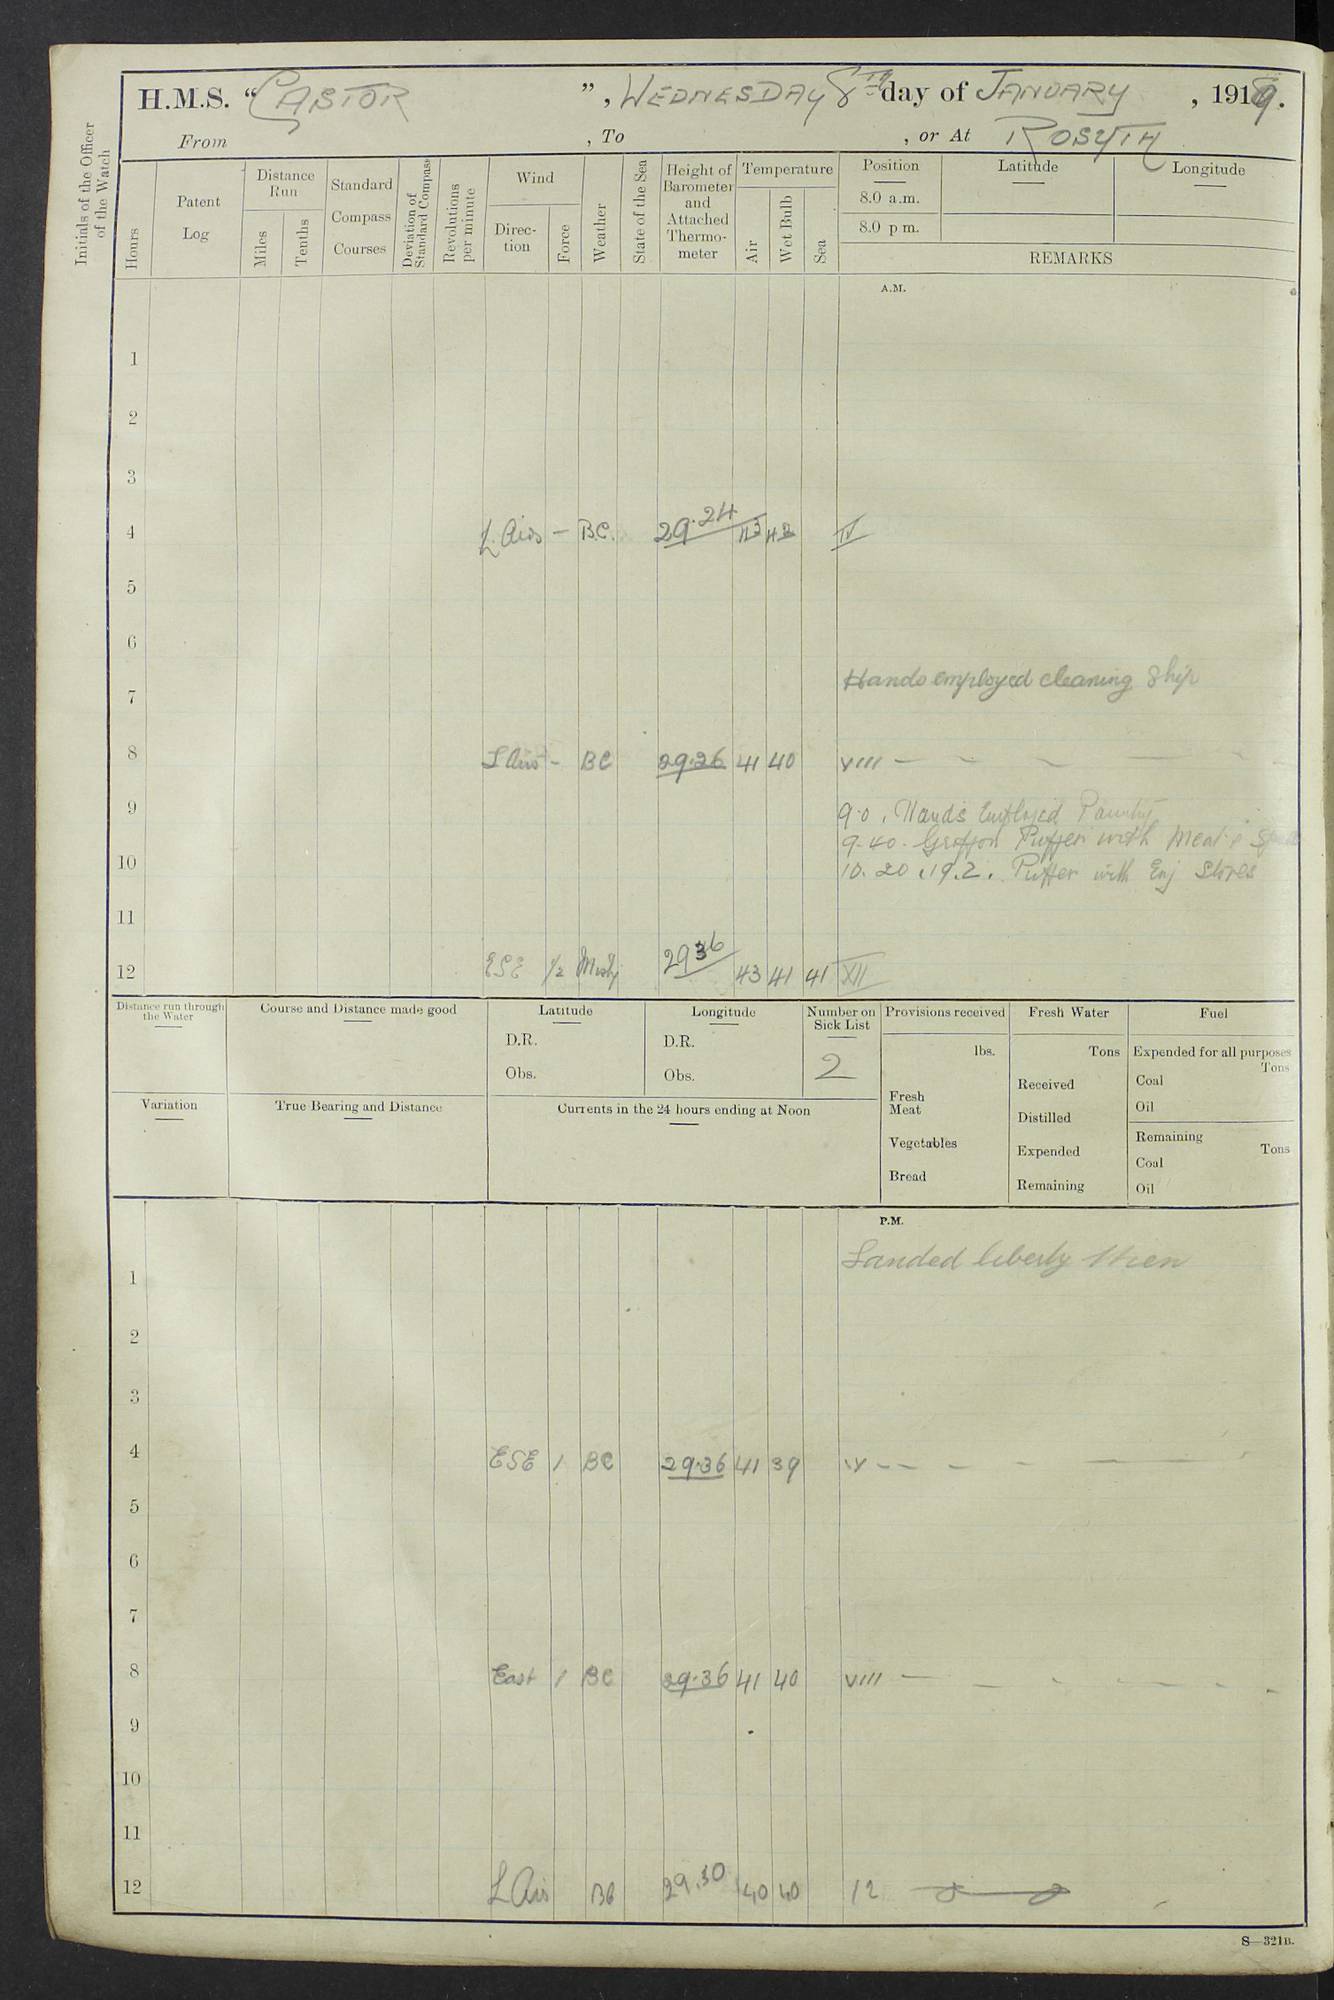 H.M.S. “CASTOR”, WEDNESDAY 8TH day of JANUARY, 1919.
From , To , or At ROSYTH
Initials of the Officer of the Watch
Hours
Patent Log
Distance Run
Miles
Tenths
Standard Compass Courses
Deviation of Standard Compass
Revolutions per minute
Wind
Direction
Force
Weather
State of the Sea
Height of Barometer and Attached Thermometer
Temperature
Air
Wet Bulb
Sea
Position
8.0 a.m.
8.0 p.m.
Latitude
Longitude
REMARKS
A.M.
1
2
3
4 L. Airs – B.C. 29.24 43 42 IV
5
6
Hands employed cleaning Ship
7
8 L Airs – BC 29.26 41 40 VIII
9 9.0. Hands Employed
9.40. Griffon Puffer with Meat
10
10.20. Puffer with Eng Stores
11
12 ESE 1/2 Misty 29 36 43 41 41 XII
Distance run through the Water
Course and Distance made good
Latitude
D.R.
Obs.
Longitude
D.R.
Obs.
Number on Sick List
2
Provisions received
lbs.
Fresh Meat
Vegetables
Bread
Fresh Water
Tons
Received
Distilled
Expended
Remaining
Fuel
Expended for all purposes
Tons
Coal
Oil
Remaining
Tons
Coal
Oil
Variation
True Bearing and Distance
Currents in the 24 hours ending at Noon
P.M.
Landed liberty Men
1
2
3
4 ESE 1 BC 29.36 41 39 IV
5
6
7
8 East 1 BC 29.36 41 40 VIII
9
10
11
12 L Airs BC 29.30 40 40 12
S—321B.